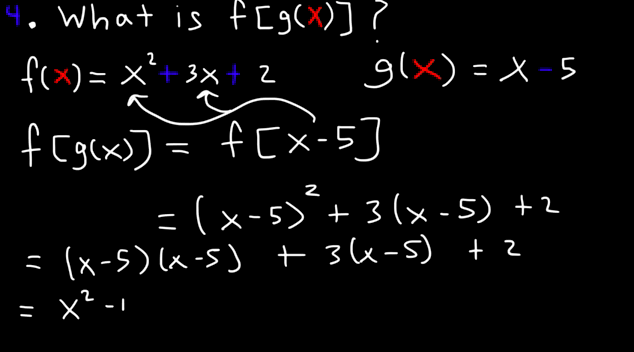 4. What is f[g(x)]?
f(x) = x² + 3x + 2 g(x) = x - 5
f[g(x)] = f[x-5]
= (x-5)² + 3(x-5) + 2
= (x-5)(x-5) + 3(x-5) + 2
= x² - 1